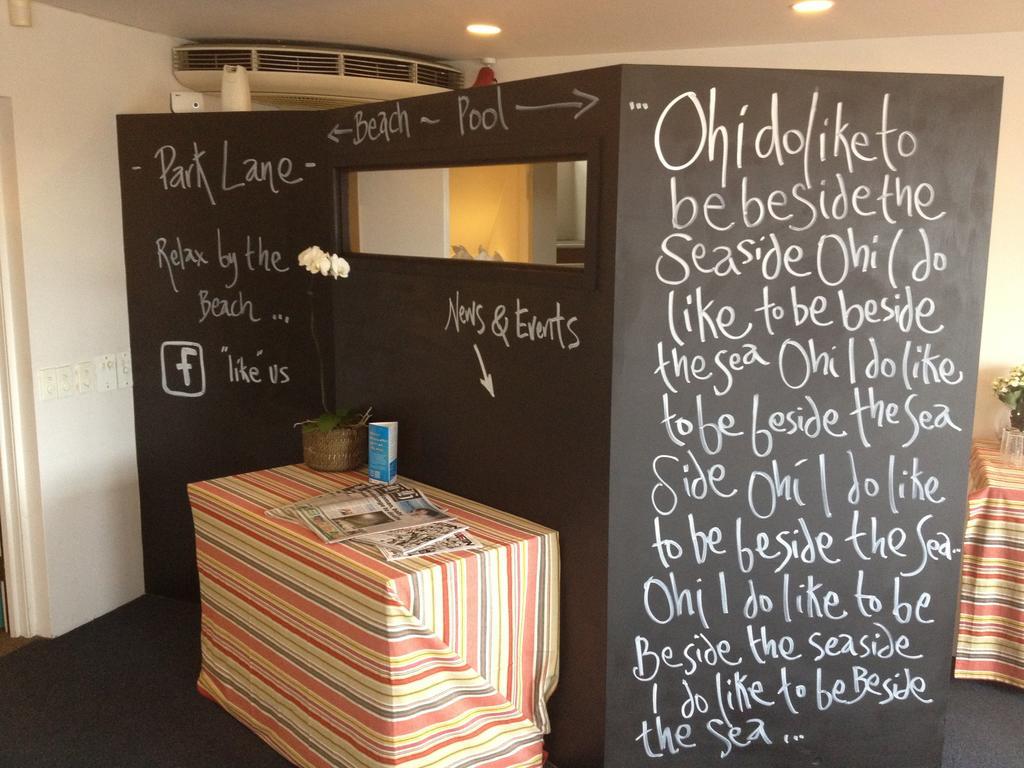 - Park Lane -
Relax by the
Beach ...
f "like" us
← Beach ~ Pool →
News & Events
... Oh i do like to
be beside the
Seaside Oh i I do
like to be beside
the sea Oh i I do like
to be beside the Sea
Side Oh i I do like
to be beside the Sea...
Oh i I do like to be
Beside the seaside
I do like to be Beside
the Sea ...